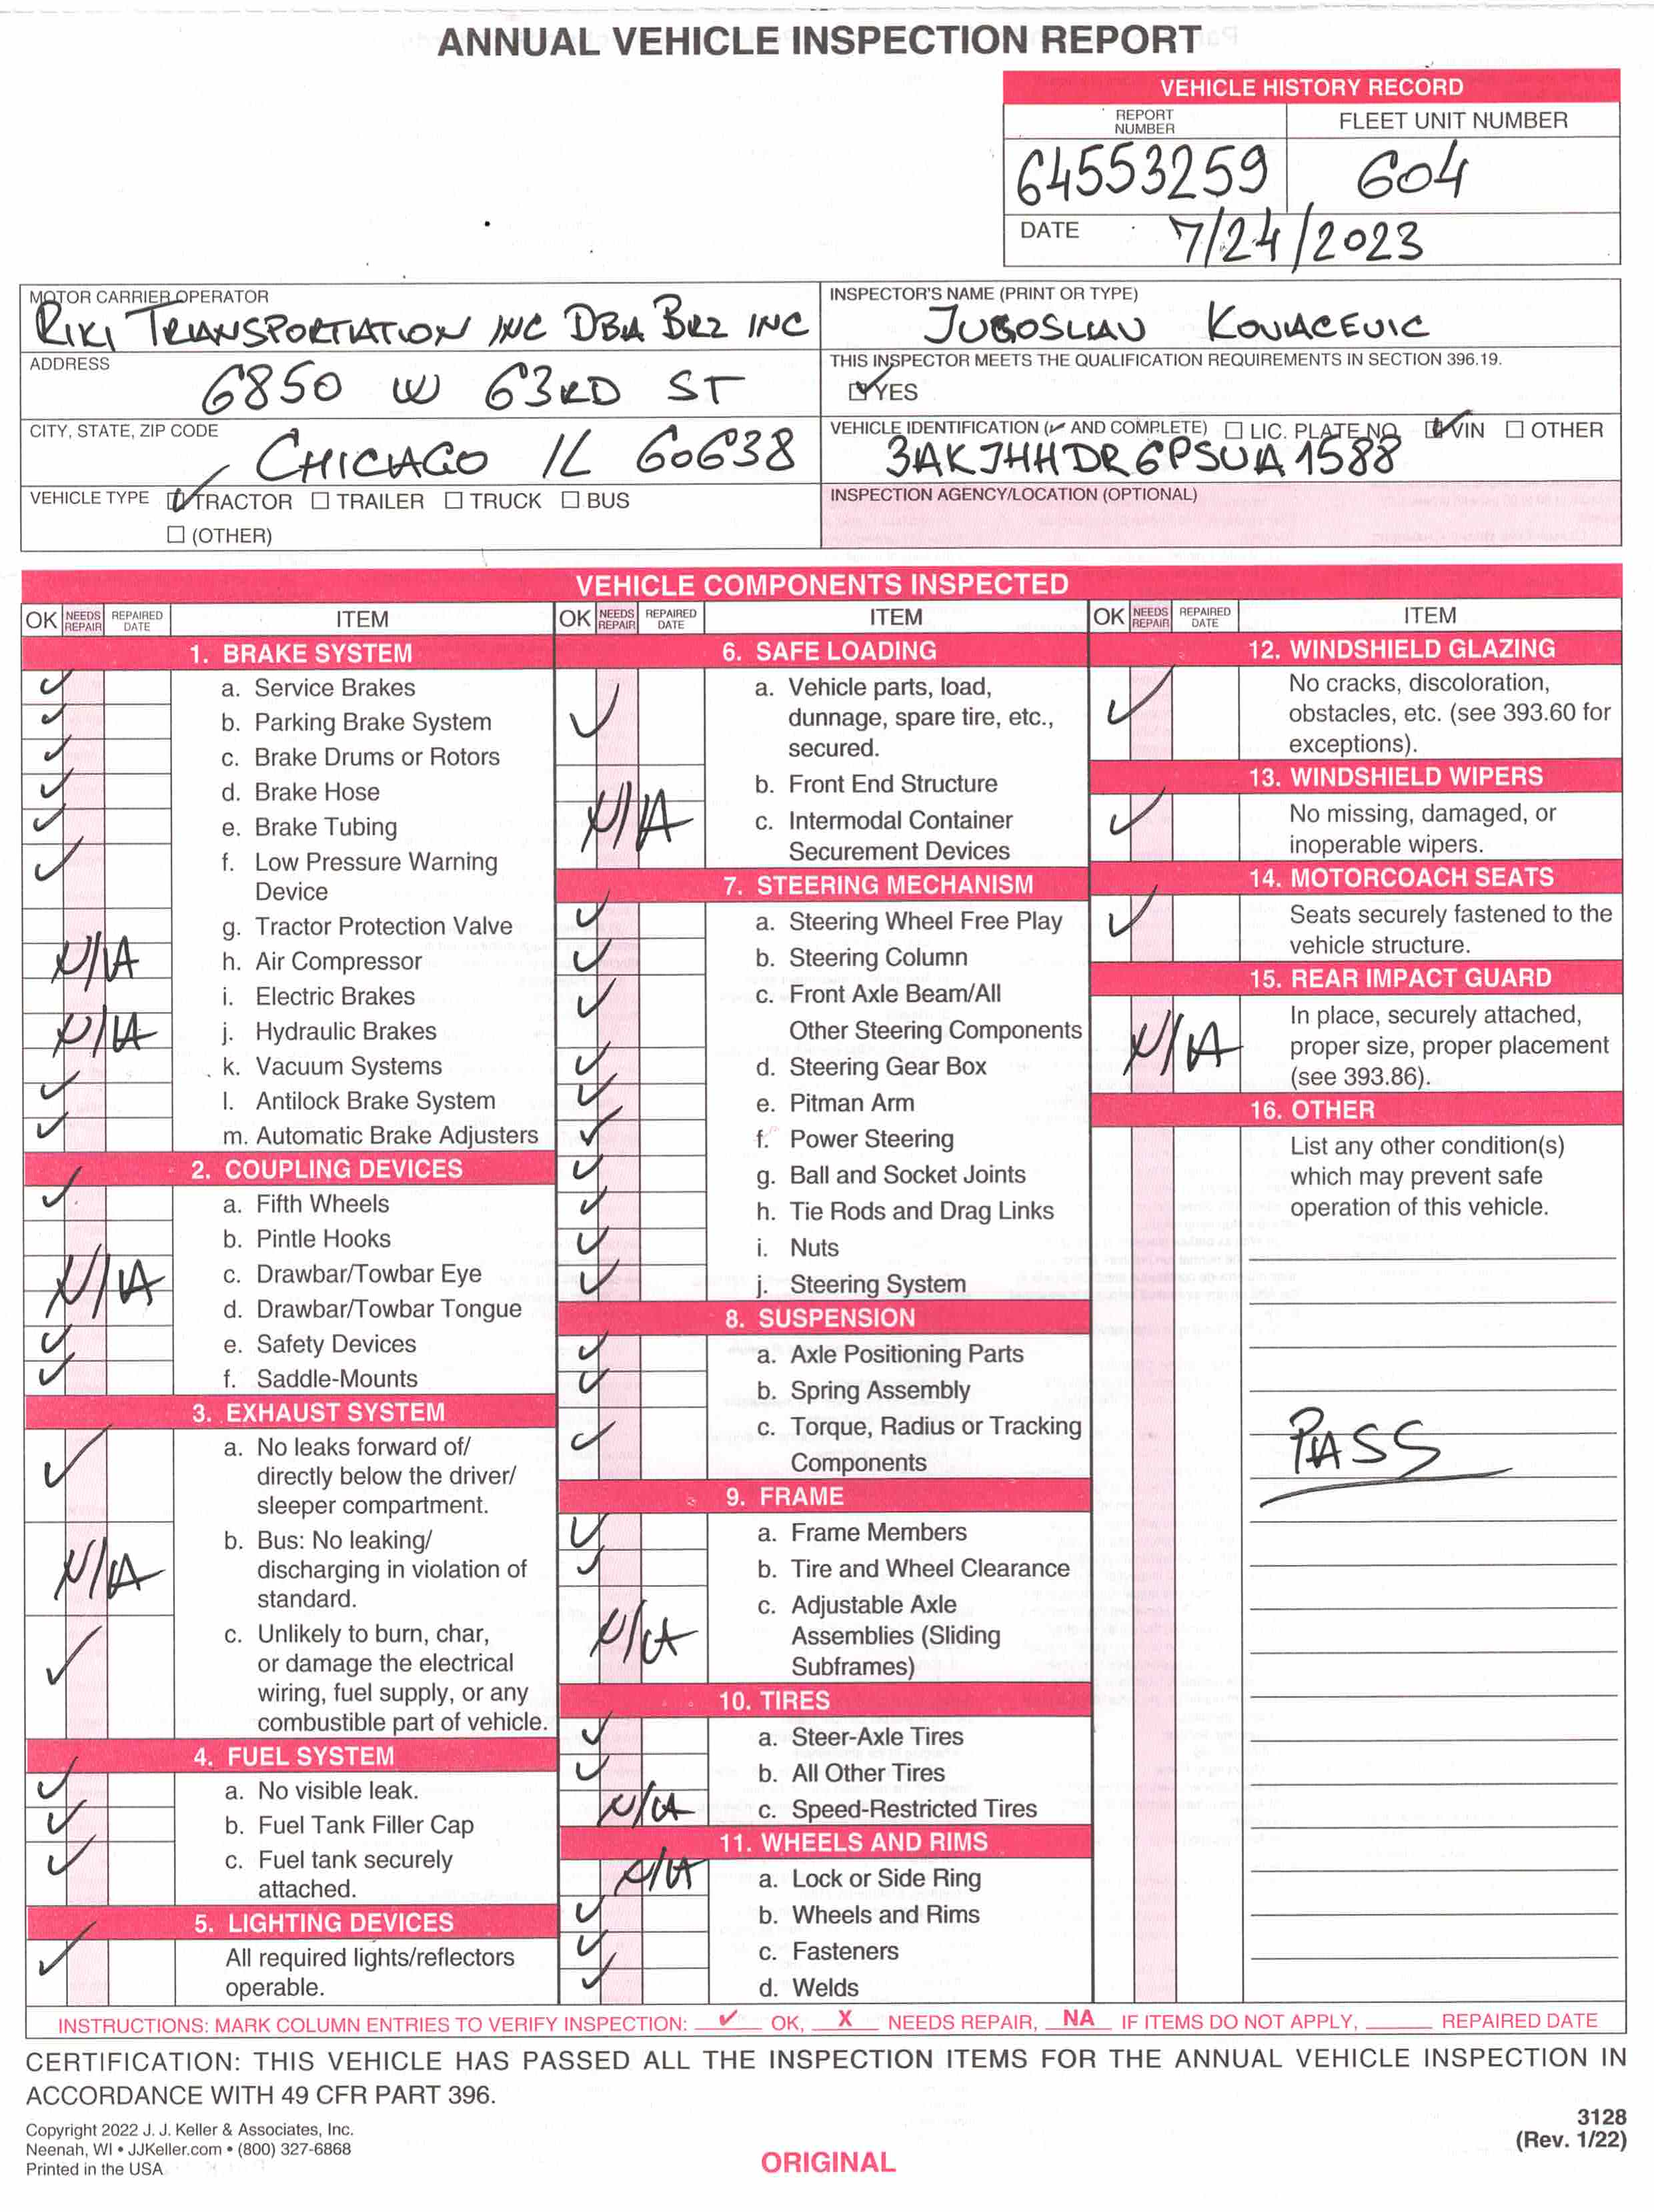 ANNUAL VEHICLE INSPECTION REPORT
VEHICLE HISTORY RECORD
REPORT NUMBER
FLEET UNIT NUMBER
64553259
604
DATE 7/24/2023
MOTOR CARRIER OPERATOR
RIKI TRANSPORTATION INC DBA BRZ INC
INSPECTOR'S NAME (PRINT OR TYPE)
JUGOSLAV KOVACEVIC
ADDRESS
6850 W 63RD ST
THIS INSPECTOR MEETS THE QUALIFICATION REQUIREMENTS IN SECTION 396.19.
☑ YES
CITY, STATE, ZIP CODE
CHICAGO IL 60638
VEHICLE IDENTIFICATION (✓ AND COMPLETE) ☐ LIC. PLATE NO. ☑ VIN ☐ OTHER
3AKJHHDR6PSUA1588
VEHICLE TYPE ☑ TRACTOR ☐ TRAILER ☐ TRUCK ☐ BUS
☐ (OTHER)
INSPECTION AGENCY/LOCATION (OPTIONAL)
VEHICLE COMPONENTS INSPECTED
OK NEEDS REPAIR REPAIRED DATE ITEM
1. BRAKE SYSTEM
✓ a. Service Brakes
✓ b. Parking Brake System
✓ c. Brake Drums or Rotors
✓ d. Brake Hose
✓ e. Brake Tubing
✓ f. Low Pressure Warning
Device
g. Tractor Protection Valve
N/A h. Air Compressor
i. Electric Brakes
N/A j. Hydraulic Brakes
k. Vacuum Systems
✓ l. Antilock Brake System
✓ m. Automatic Brake Adjusters
2. COUPLING DEVICES
✓ a. Fifth Wheels
b. Pintle Hooks
N/A c. Drawbar/Towbar Eye
d. Drawbar/Towbar Tongue
✓ e. Safety Devices
✓ f. Saddle-Mounts
3. EXHAUST SYSTEM
✓ a. No leaks forward of/
directly below the driver/
sleeper compartment.
N/A b. Bus: No leaking/
discharging in violation of
standard.
✓ c. Unlikely to burn, char,
or damage the electrical
wiring, fuel supply, or any
combustible part of vehicle.
4. FUEL SYSTEM
✓ a. No visible leak.
✓ b. Fuel Tank Filler Cap
✓ c. Fuel tank securely
attached.
5. LIGHTING DEVICES
✓ All required lights/reflectors
operable.
OK NEEDS REPAIR REPAIRED DATE ITEM
6. SAFE LOADING
✓ a. Vehicle parts, load,
dunnage, spare tire, etc.,
secured.
b. Front End Structure
N/A c. Intermodal Container
Securement Devices
7. STEERING MECHANISM
✓ a. Steering Wheel Free Play
✓ b. Steering Column
✓ c. Front Axle Beam/All
Other Steering Components
✓ d. Steering Gear Box
✓ e. Pitman Arm
✓ f. Power Steering
✓ g. Ball and Socket Joints
✓ h. Tie Rods and Drag Links
✓ i. Nuts
✓ j. Steering System
8. SUSPENSION
✓ a. Axle Positioning Parts
✓ b. Spring Assembly
✓ c. Torque, Radius or Tracking
Components
9. FRAME
✓ a. Frame Members
✓ b. Tire and Wheel Clearance
N/A c. Adjustable Axle
Assemblies (Sliding
Subframes)
10. TIRES
✓ a. Steer-Axle Tires
✓ b. All Other Tires
N/A c. Speed-Restricted Tires
11. WHEELS AND RIMS
N/A a. Lock or Side Ring
✓ b. Wheels and Rims
✓ c. Fasteners
✓ d. Welds
OK NEEDS REPAIR REPAIRED DATE ITEM
12. WINDSHIELD GLAZING
✓ No cracks, discoloration,
obstacles, etc. (see 393.60 for
exceptions).
13. WINDSHIELD WIPERS
✓ No missing, damaged, or
inoperable wipers.
14. MOTORCOACH SEATS
✓ Seats securely fastened to the
vehicle structure.
15. REAR IMPACT GUARD
N/A In place, securely attached,
proper size, proper placement
(see 393.86).
16. OTHER
List any other condition(s)
which may prevent safe
operation of this vehicle.
PASS
INSTRUCTIONS: MARK COLUMN ENTRIES TO VERIFY INSPECTION: ✓ OK, X NEEDS REPAIR, NA IF ITEMS DO NOT APPLY, ____ REPAIRED DATE
CERTIFICATION: THIS VEHICLE HAS PASSED ALL THE INSPECTION ITEMS FOR THE ANNUAL VEHICLE INSPECTION IN
ACCORDANCE WITH 49 CFR PART 396.
Copyright 2022 J. J. Keller & Associates, Inc.
Neenah, WI • JJKeller.com • (800) 327-6868
Printed in the USA
ORIGINAL
3128
(Rev. 1/22)